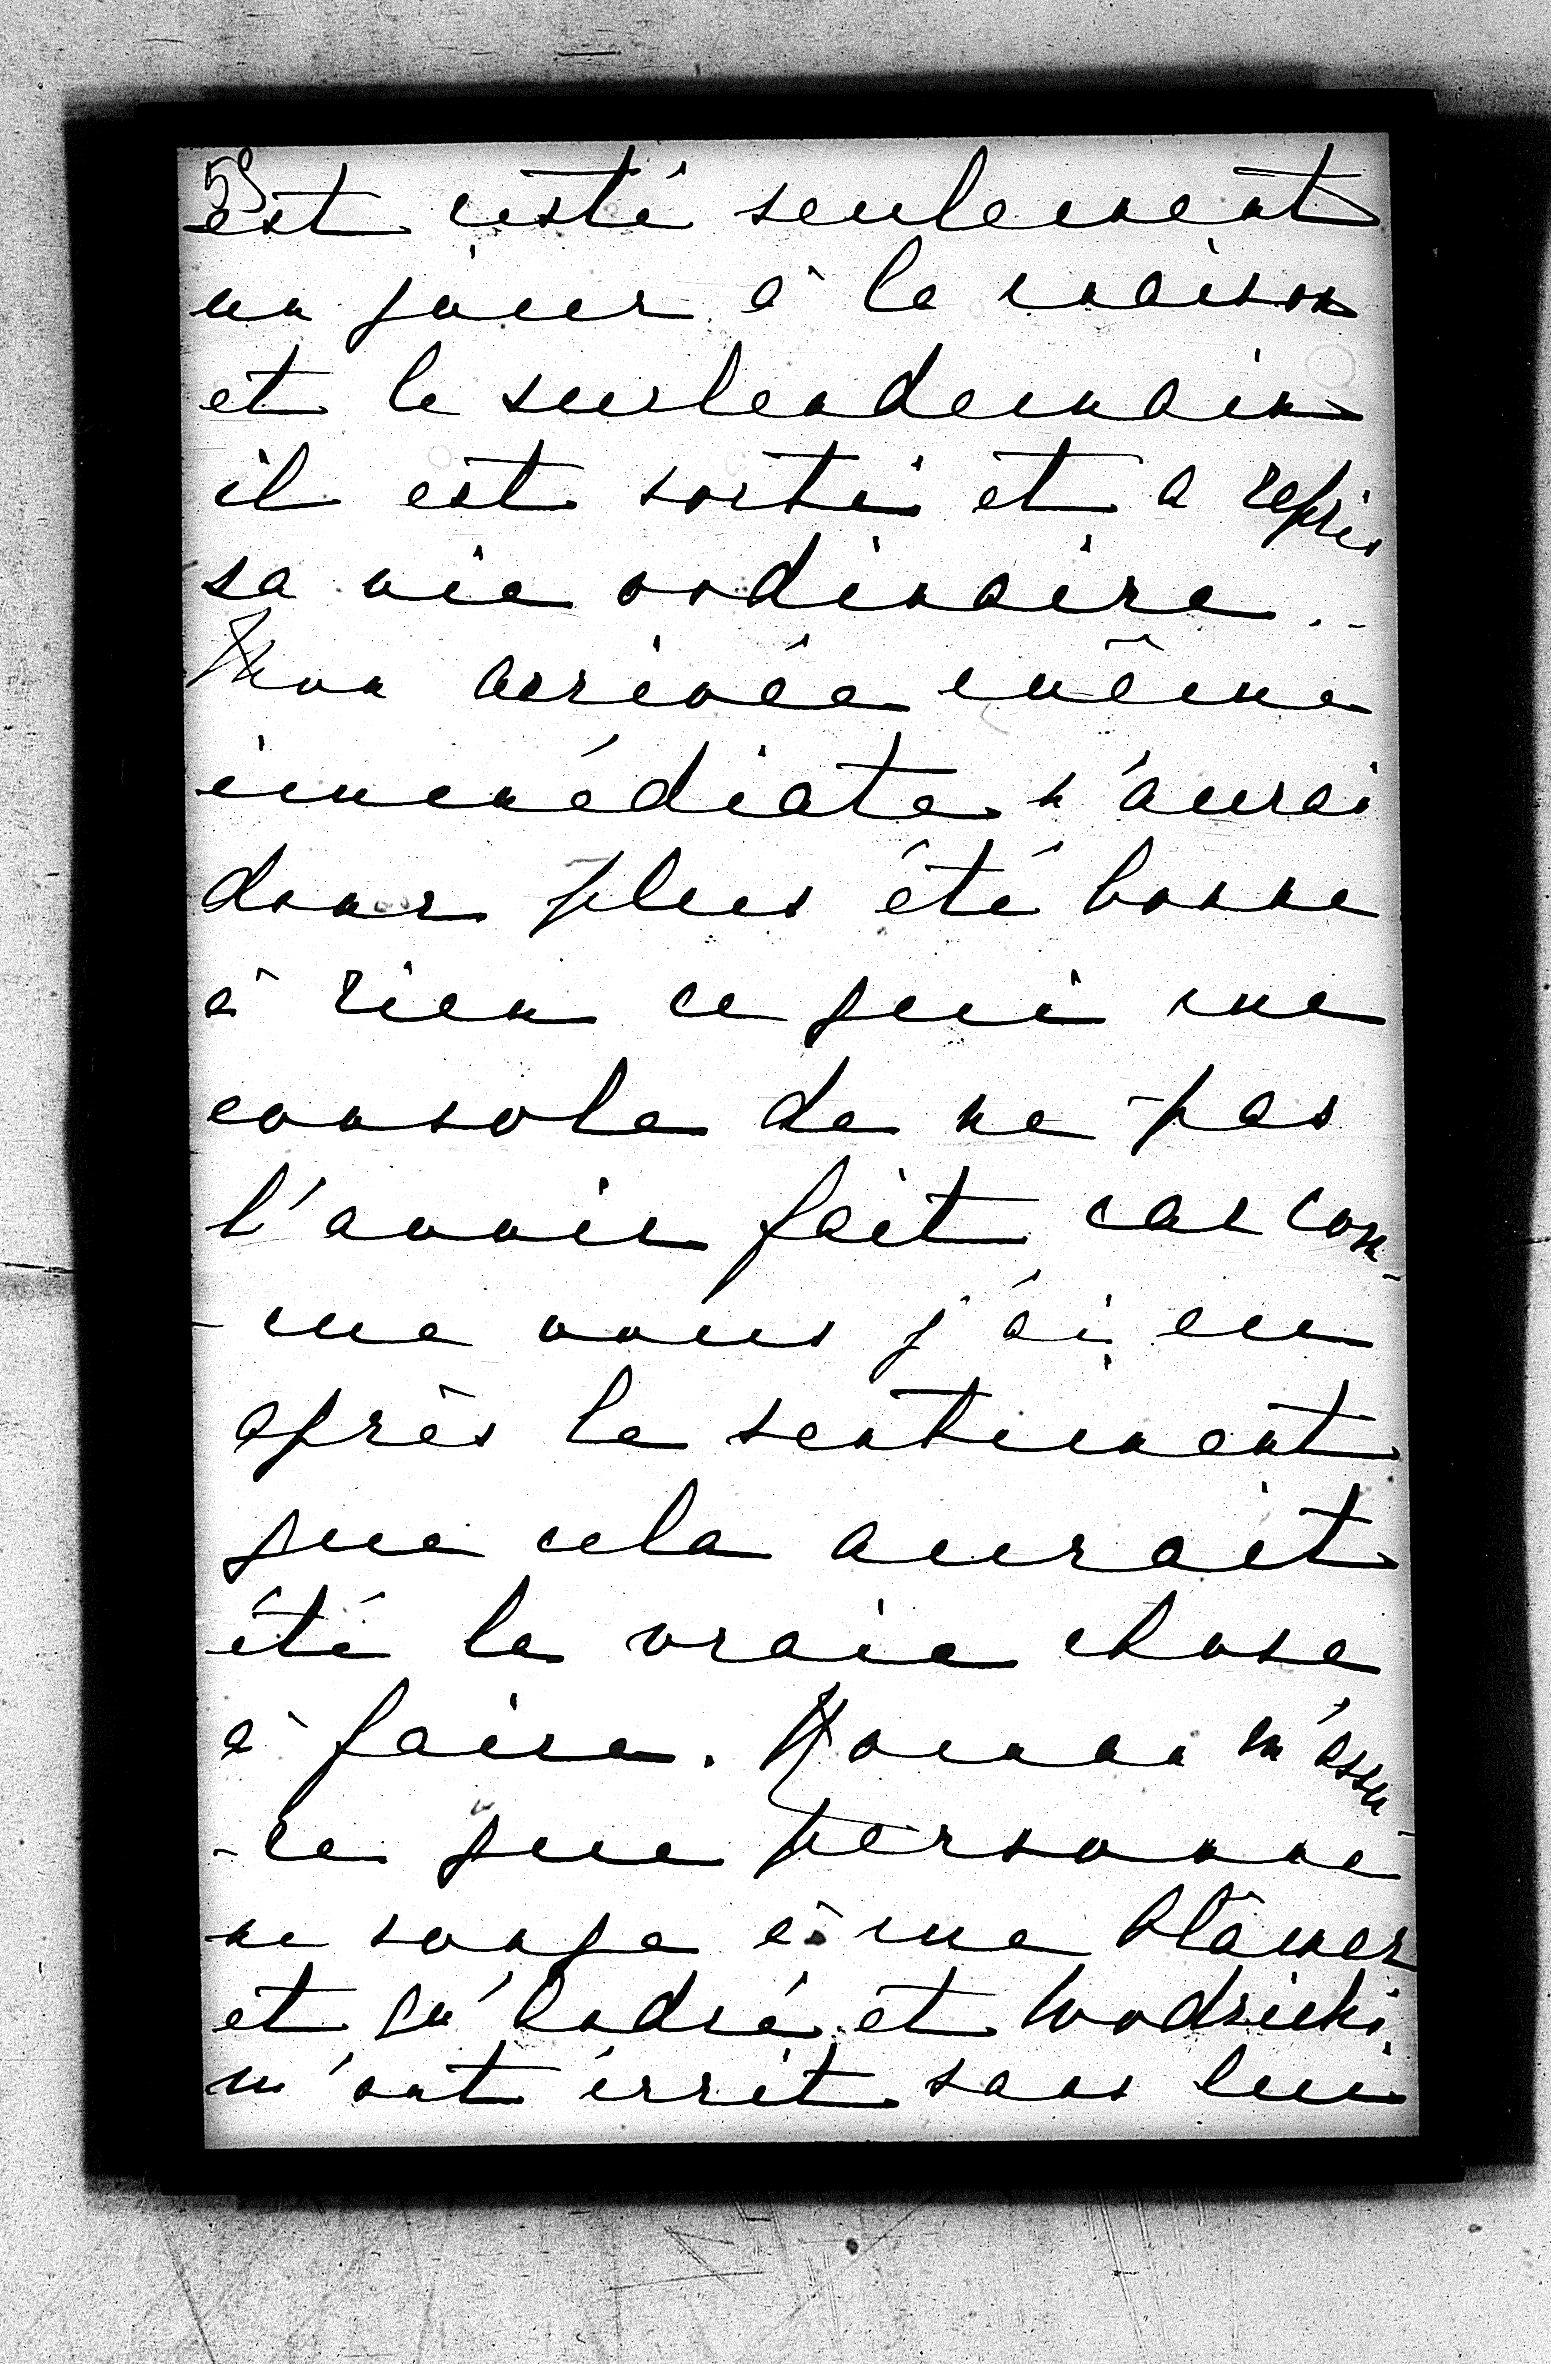 59
est resté seulement
un jour à la maison
et le surlendemain
il est sorti et a repris
sa vie ordinaire..
Mon arrivée même
immédiate n'aurai
donc plus été bonne
à rien ce qui me
console de ne pas
l'avoir fait car com-
-me vous j'ai eu
après le sentiment
que cela aurait
été la vraie chose
à faire. Maman m'assu-
-re que personne
ne songe à me blâmer
et qu' et Wodzicki
m'ont écrit sans lui